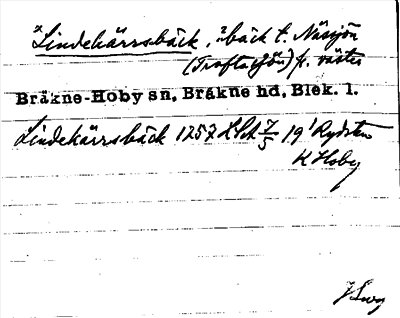 Lindekärrsbäck, bäck t. Nässjön
(Traftasjön) fr. väster
Bräkne-Hoby sn, Bräkne hd, Blek. l.
Lindekärrsbäck 1757 LSA 7/5 19
K Hoby